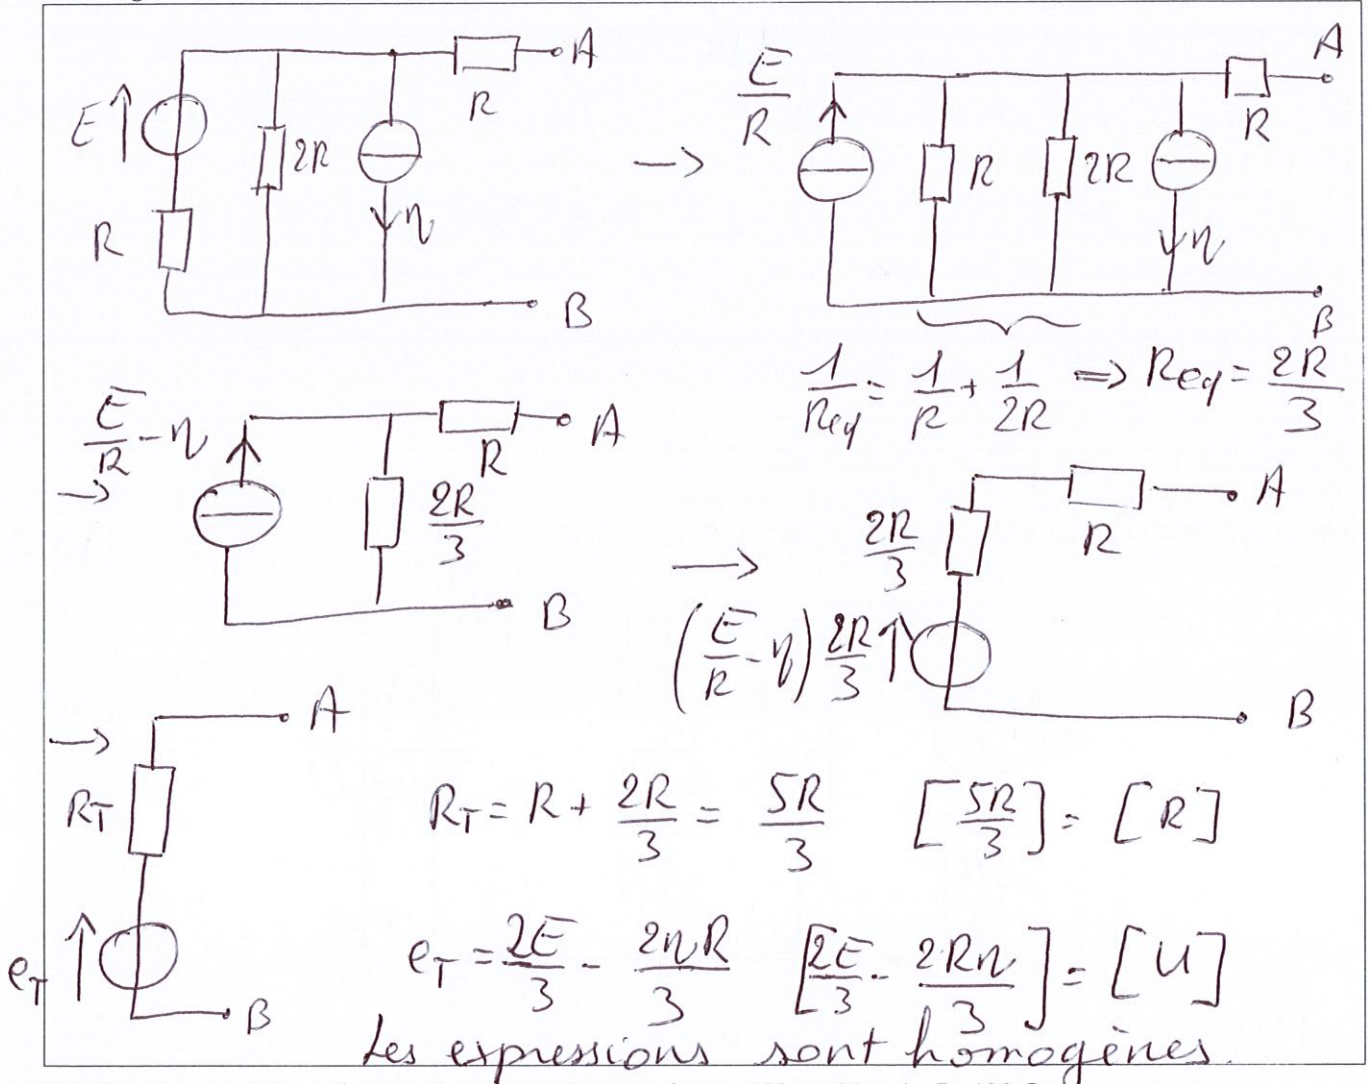 E R 2R η R A B
→ E/R R 2R η R A B
1/Req = 1/R + 1/2R => Req = 2R/3
→ E/R - η 2R/3 R A B
→ (E/R - η) 2R/3 2R/3 R A B
→ RT eT A B
RT = R + 2R/3 = 5R/3 [5R/3] = [R]
eT = 2E/3 - 2ηR/3 [2E/3 - 2Rη/3] = [U]
Les expressions sont homogènes.